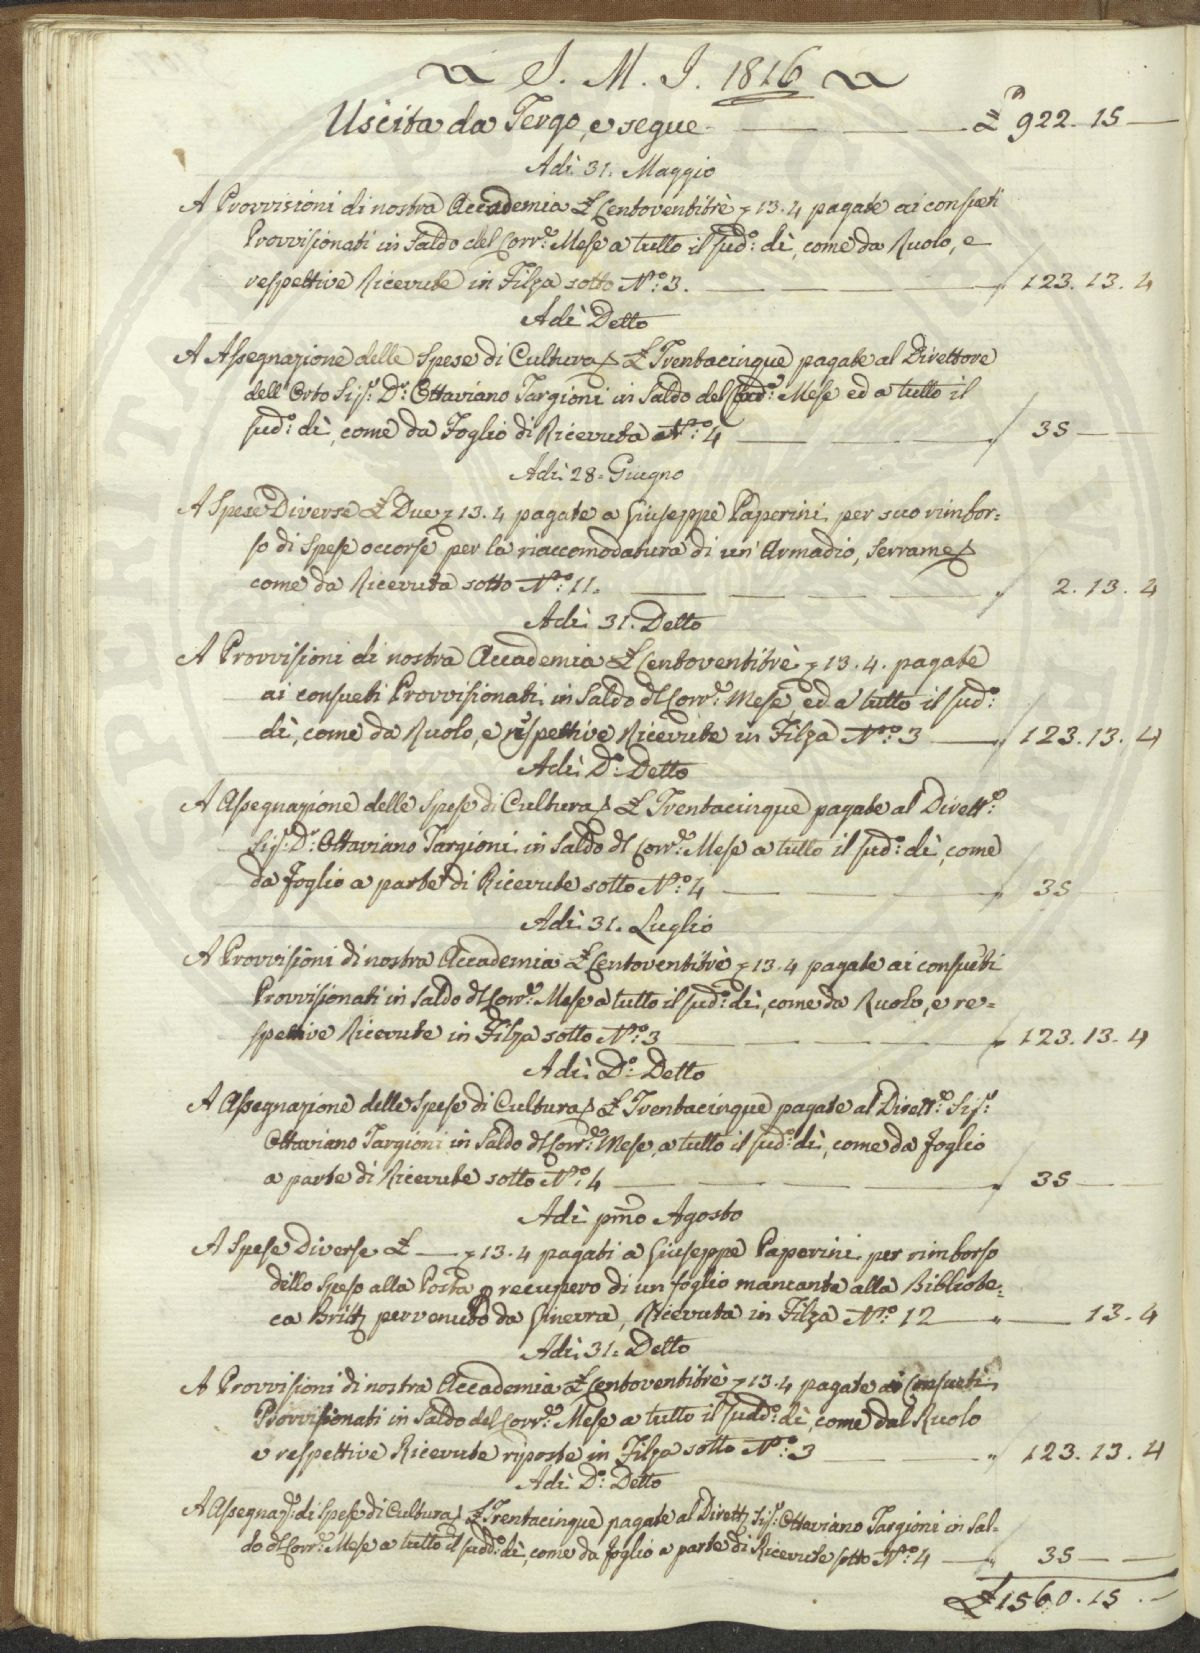 J. M. J. 1816
Uscita da Tergo, e segue £ 922. 15 —
Adì 31. Maggio
A Provvisioni di nostra Accademia £ Centoventitrè 13. 4 pagate ai consueti
Provvisionati in Saldo del Corr.e Mese a tutto il sud.o dì, come da Ruolo, e
respettive Ricevute in Filza sotto N.o 3. 123. 13. 4
Adì Detto
A Assegnazione delle Spese di Cultura £ Trentacinque pagate al Direttore
dell'Orto Sig.r D.r Ottaviano Targioni in Saldo del Mese ed a tutto il
sud.o dì, come da Foglio di Ricevuta N.o 4 35 —
Adì 28. Giugno
A Spese Diverse £ Due 13. 4 pagate a Giuseppe Paperini per suo rimbor=
so di spese occorse per la riaccomodatura di un'Armadio, serrame
come da Ricevuta sotto N.o 11. 2. 13. 4
Adì 31. Detto
A Provvisioni di nostra Accademia £ Centoventitrè 13. 4. pagate
ai consueti Provvisionati in Saldo dl Corr.e Mese, ed a tutto il sud.o
dì, come da Ruolo, e rispettive Ricevute in Filza N.o 3 123. 13. 4
Adì D.o Detto
A Assegnazione delle Spese di Cultura £ Trentacinque pagate al Dirett.e
Sig.r D.r Ottaviano Targioni in Saldo dl Corr.e Mese a tutto il sud.o dì, come
da foglio a parte di Ricevute sotto N.o 4 35
Adì 31. Luglio
A Provvisioni di nostra Accademia £ Centoventitrè 13. 4 pagate ai consueti
Provvisionati in Saldo dl Corr.e Mese a tutto il sud.o dì, come da Ruolo, e re=
spettive Ricevute in Filza sotto N.o 3 123. 13. 4
Adì D.o Detto
A Assegnazione delle Spese di Cultura £ Trentacinque pagate al Dirett.e Sig.r
Ottaviano Targioni in Saldo dl Corr.e Mese, a tutto il sud.o dì, come da foglio
a parte di Ricevute sotto N.o 4 35 —
Adì pmo Agosto
A Spese Diverse £ — 13. 4 pagati a Giuseppe Paperini per rimborso
dello speso alla Posta p recupero di un foglio mancante alla Bibliote=
ca Britt pervenuto da Ginevra, Ricevuta in Filza N.o 12 13. 4
Adì 31. Detto
A Provvisioni di nostra Accademia £ Centoventitrè 13. 4 pagate ai Consueti
Provvisionati in Saldo del Corr.e Mese a tutto il sudd.o dì, come dal Ruolo
e respettive Ricevute riposte in Filza sotto N.o 3 123. 13. 4
Adì D.o Detto
A Assegnaz.e di Spese di Cultura £ Trentacinque pagate al Dirett Sig.r Ottaviano Targioni in Sal=
do dl Corr.e Mese a tutto il sudd.o dì, come da foglio a parte di Ricevute sotto N.o 4 35 —
£ 1560. 15. —